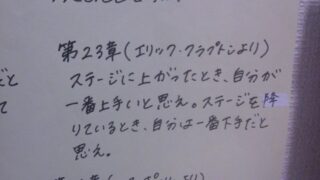 だと
て
第23章(エリック・クラプトンより)
ステージに上がったとき、自分が
一番上手いと思え。ステージを降
りているとき、自分は一番下手だと
思え。